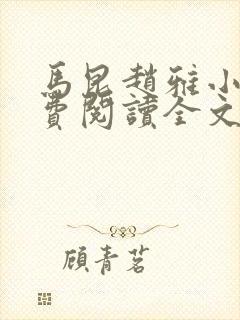 馬昆趙雅小
費閱讀全文
顧青茗